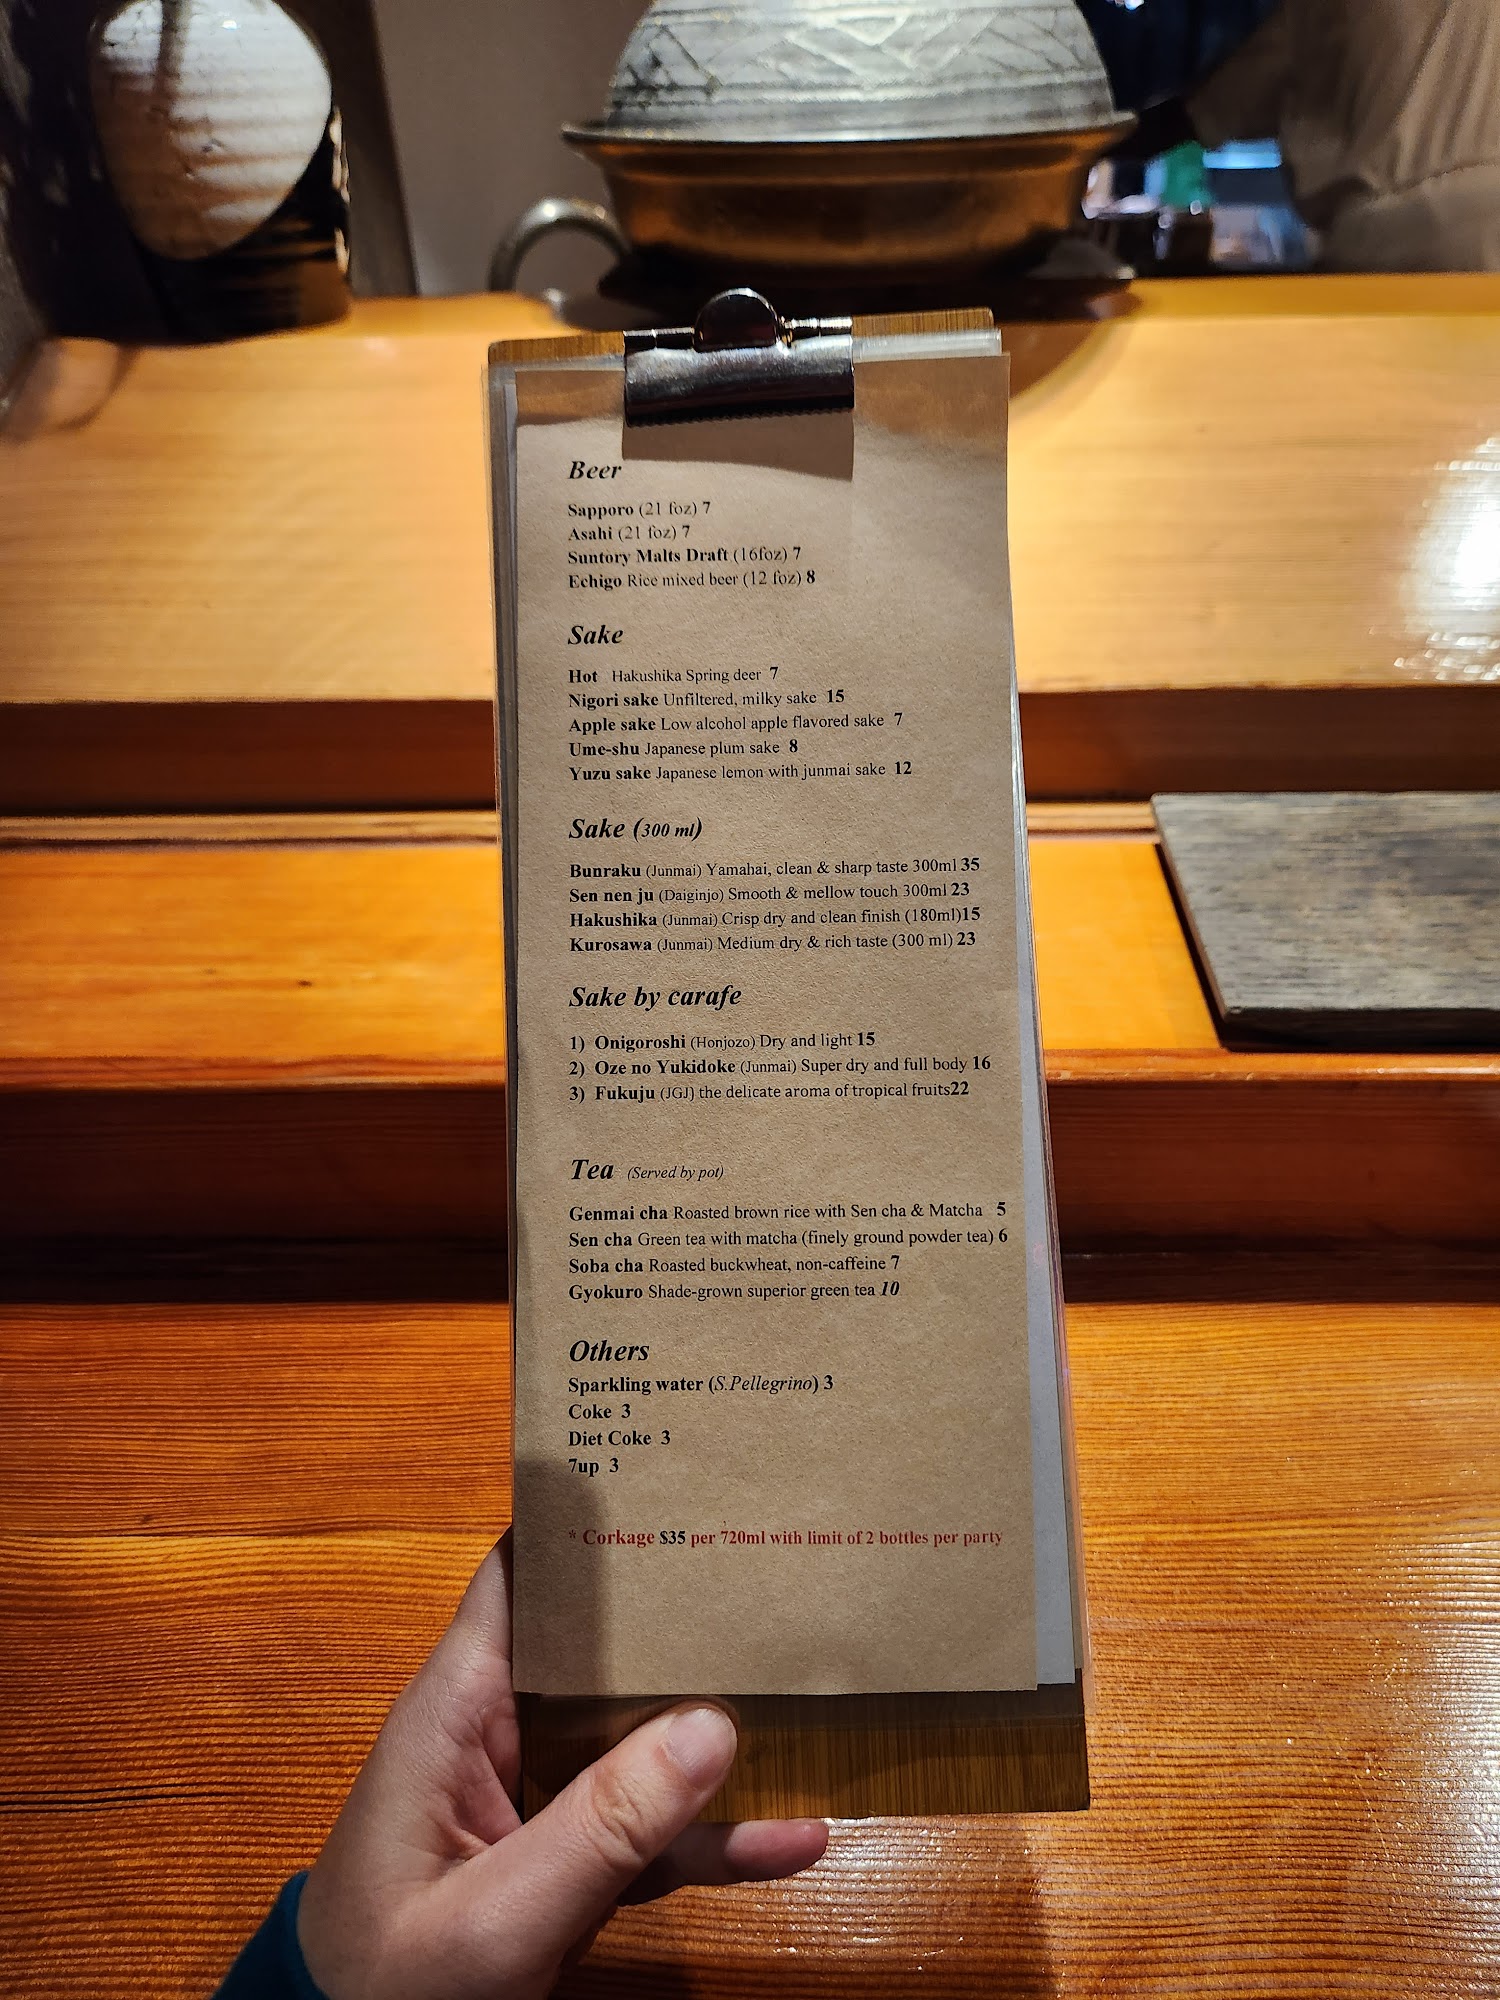 Beer
Sapporo (21 foz) 7
Asahi (21 foz) 7
Suntory Malts Draft (16foz) 7
Echigo Rice mixed beer (12 foz) 8
Sake
Hot Hakushika Spring deer 7
Nigori sake Unfiltered, milky sake 15
Apple sake Low alcohol apple flavored sake 7
Ume-shu Japanese plum sake 8
Yuzu sake Japanese lemon with junmai sake 12
Sake (300 ml)
Bunraku (Junmai) Yamahai, clean & sharp taste 300ml 35
Sen nen ju (Daiginjo) Smooth & mellow touch 300ml 23
Hakushika (Junmai) Crisp dry and clean finish (180ml)15
Kurosawa (Junmai) Medium dry & rich taste (300 ml) 23
Sake by carafe
1) Onigoroshi (Honjozo) Dry and light 15
2) Oze no Yukidoke (Junmai) Super dry and full body 16
3) Fukuju (JGJ) the delicate aroma of tropical fruits22
Tea (Served by pot)
Genmai cha Roasted brown rice with Sen cha & Matcha 5
Sen cha Green tea with matcha (finely ground powder tea) 6
Soba cha Roasted buckwheat, non-caffeine 7
Gyokuro Shade-grown superior green tea 10
Others
Sparkling water (S.Pellegrino) 3
Coke 3
Diet Coke 3
7up 3
* Corkage $35 per 720ml with limit of 2 bottles per party